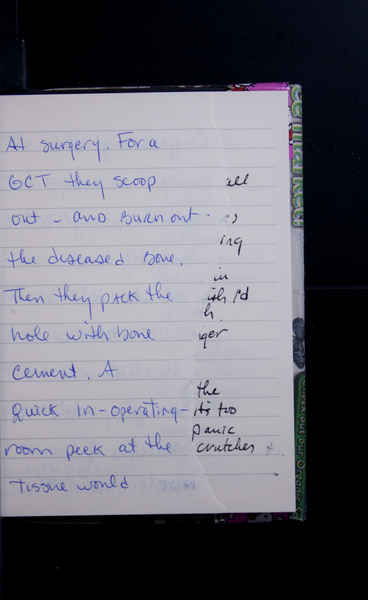 At surgery. For a
GCT they scoop
out - and Burn out
the diseased Bone.
Then they pack the
hole with bone
cement. A
Quick in-operating-
room peek at the
tissue would
all
ing
in
I'd
h.
ger
the
it's too
panic
crutches